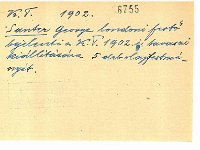 K.T. 1902. 6755
Santer George londoni festő
bejelenti a K.T. 1902 i tavaszi
kiállítására 5 drb olajfestmé-
nyét.